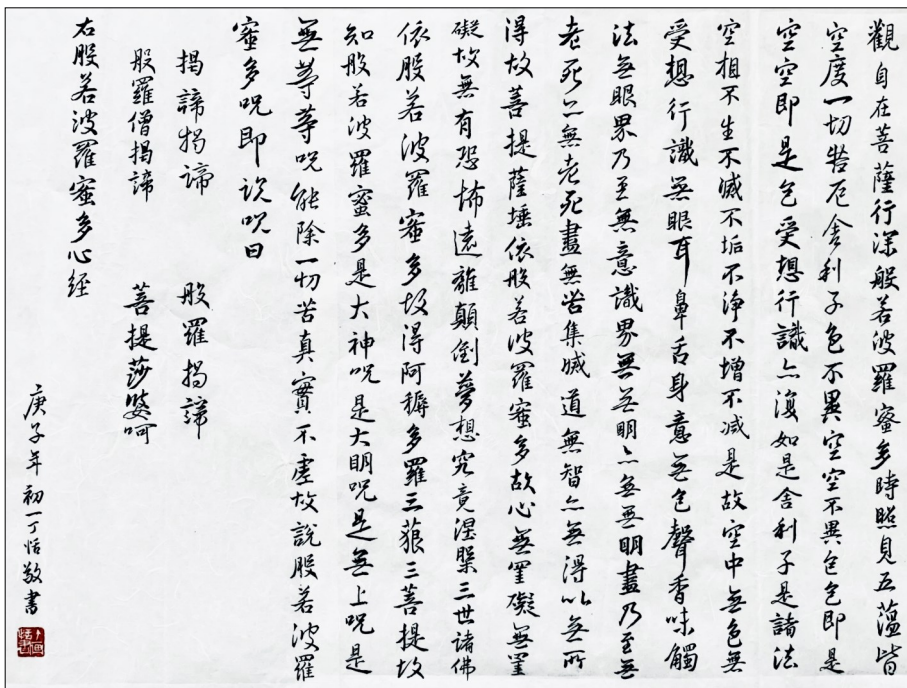 觀自在菩薩行深般若波羅蜜多時照見五蘊皆
空度一切苦厄舍利子色不異空空不異色色即是
空空即是色受想行識亦復如是舍利子是諸法
空相不生不滅不垢不淨不增不减是故空中無色無
受想行識無眼耳鼻舌身意無色聲香味觸
法無眼界乃至無意識界無無明亦無無明盡乃至無
老死亦無老死盡無苦集滅道無智亦無得以無所
得故菩提薩埵依般若波羅蜜多故心無罣礙無罣
礙故無有恐怖遠離顛倒夢想究竟涅槃三世諸佛
依般若波羅蜜多故得阿耨多羅三藐三菩提故
知般若波羅蜜多是大神咒是大明咒是無上咒是
無等等咒能除一切苦真實不虛故說般若波羅
蜜多咒即說咒曰
揭諦揭諦 般羅揭諦
般羅僧揭諦 菩提莎婆呵
右般若波羅蜜多心經
庚子年初一丁恬敬書